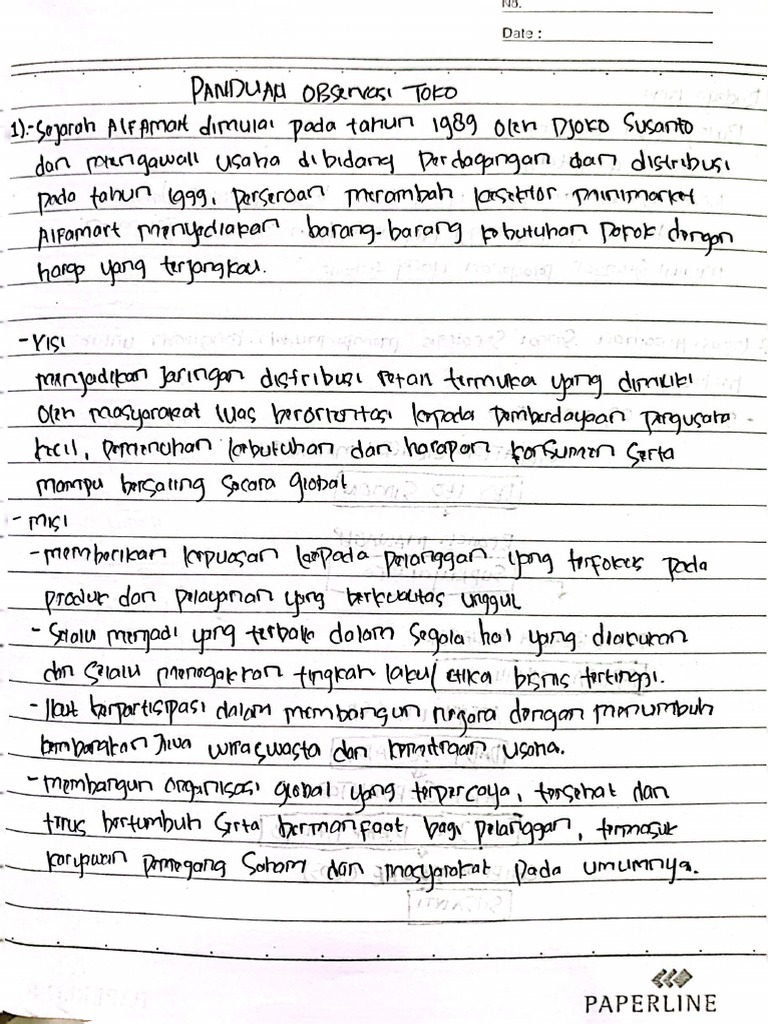 No.
Date :
PANDUAN OBservasi TOKO
1).- Sejarah AlFAmart dimulai pada tahun 1989 Oleh Djoko Susanto
dan mengawali usaha dibidang Perdagangan dan distribusi
pada tahun 1999, perseroan merambah kesektor minimarket
AlFamart menyediakan barang-barang kebutuhan Pokok dengan
harga yang terjangkau.
- Visi
menjadikan Jaringan distribusi retail termuka yang dimiliki
Oleh masyarakat luas berorientasi kepada Pemberdayaan Pengusaha
kecil, pemenuhan kebutuhan dan harapan konsumen serta
mampu bersaing secara global
- misi
- memberikan kepuasan kepada pelanggan yang terfokus pada
produk dan pelayanan yang berkualitas unggul
- Selalu menjadi yang terbaik dalam segala hal yang dilakukan
dan selalu menegakkan tingkah laku/ etika bisnis tertinggi.
- Ikut berpartisipasi dalam membangun negara dengan menumbuh
kembangkan Jiwa wiraswasta dan kemitraan usaha.
- membangun organisasi global yang terpercaya, tersehat dan
terus bertumbuh serta bermanfaat bagi pelanggan, termasuk
karyawan Pemegang Saham dan masyarakat pada umumnya.
PAPERLINE